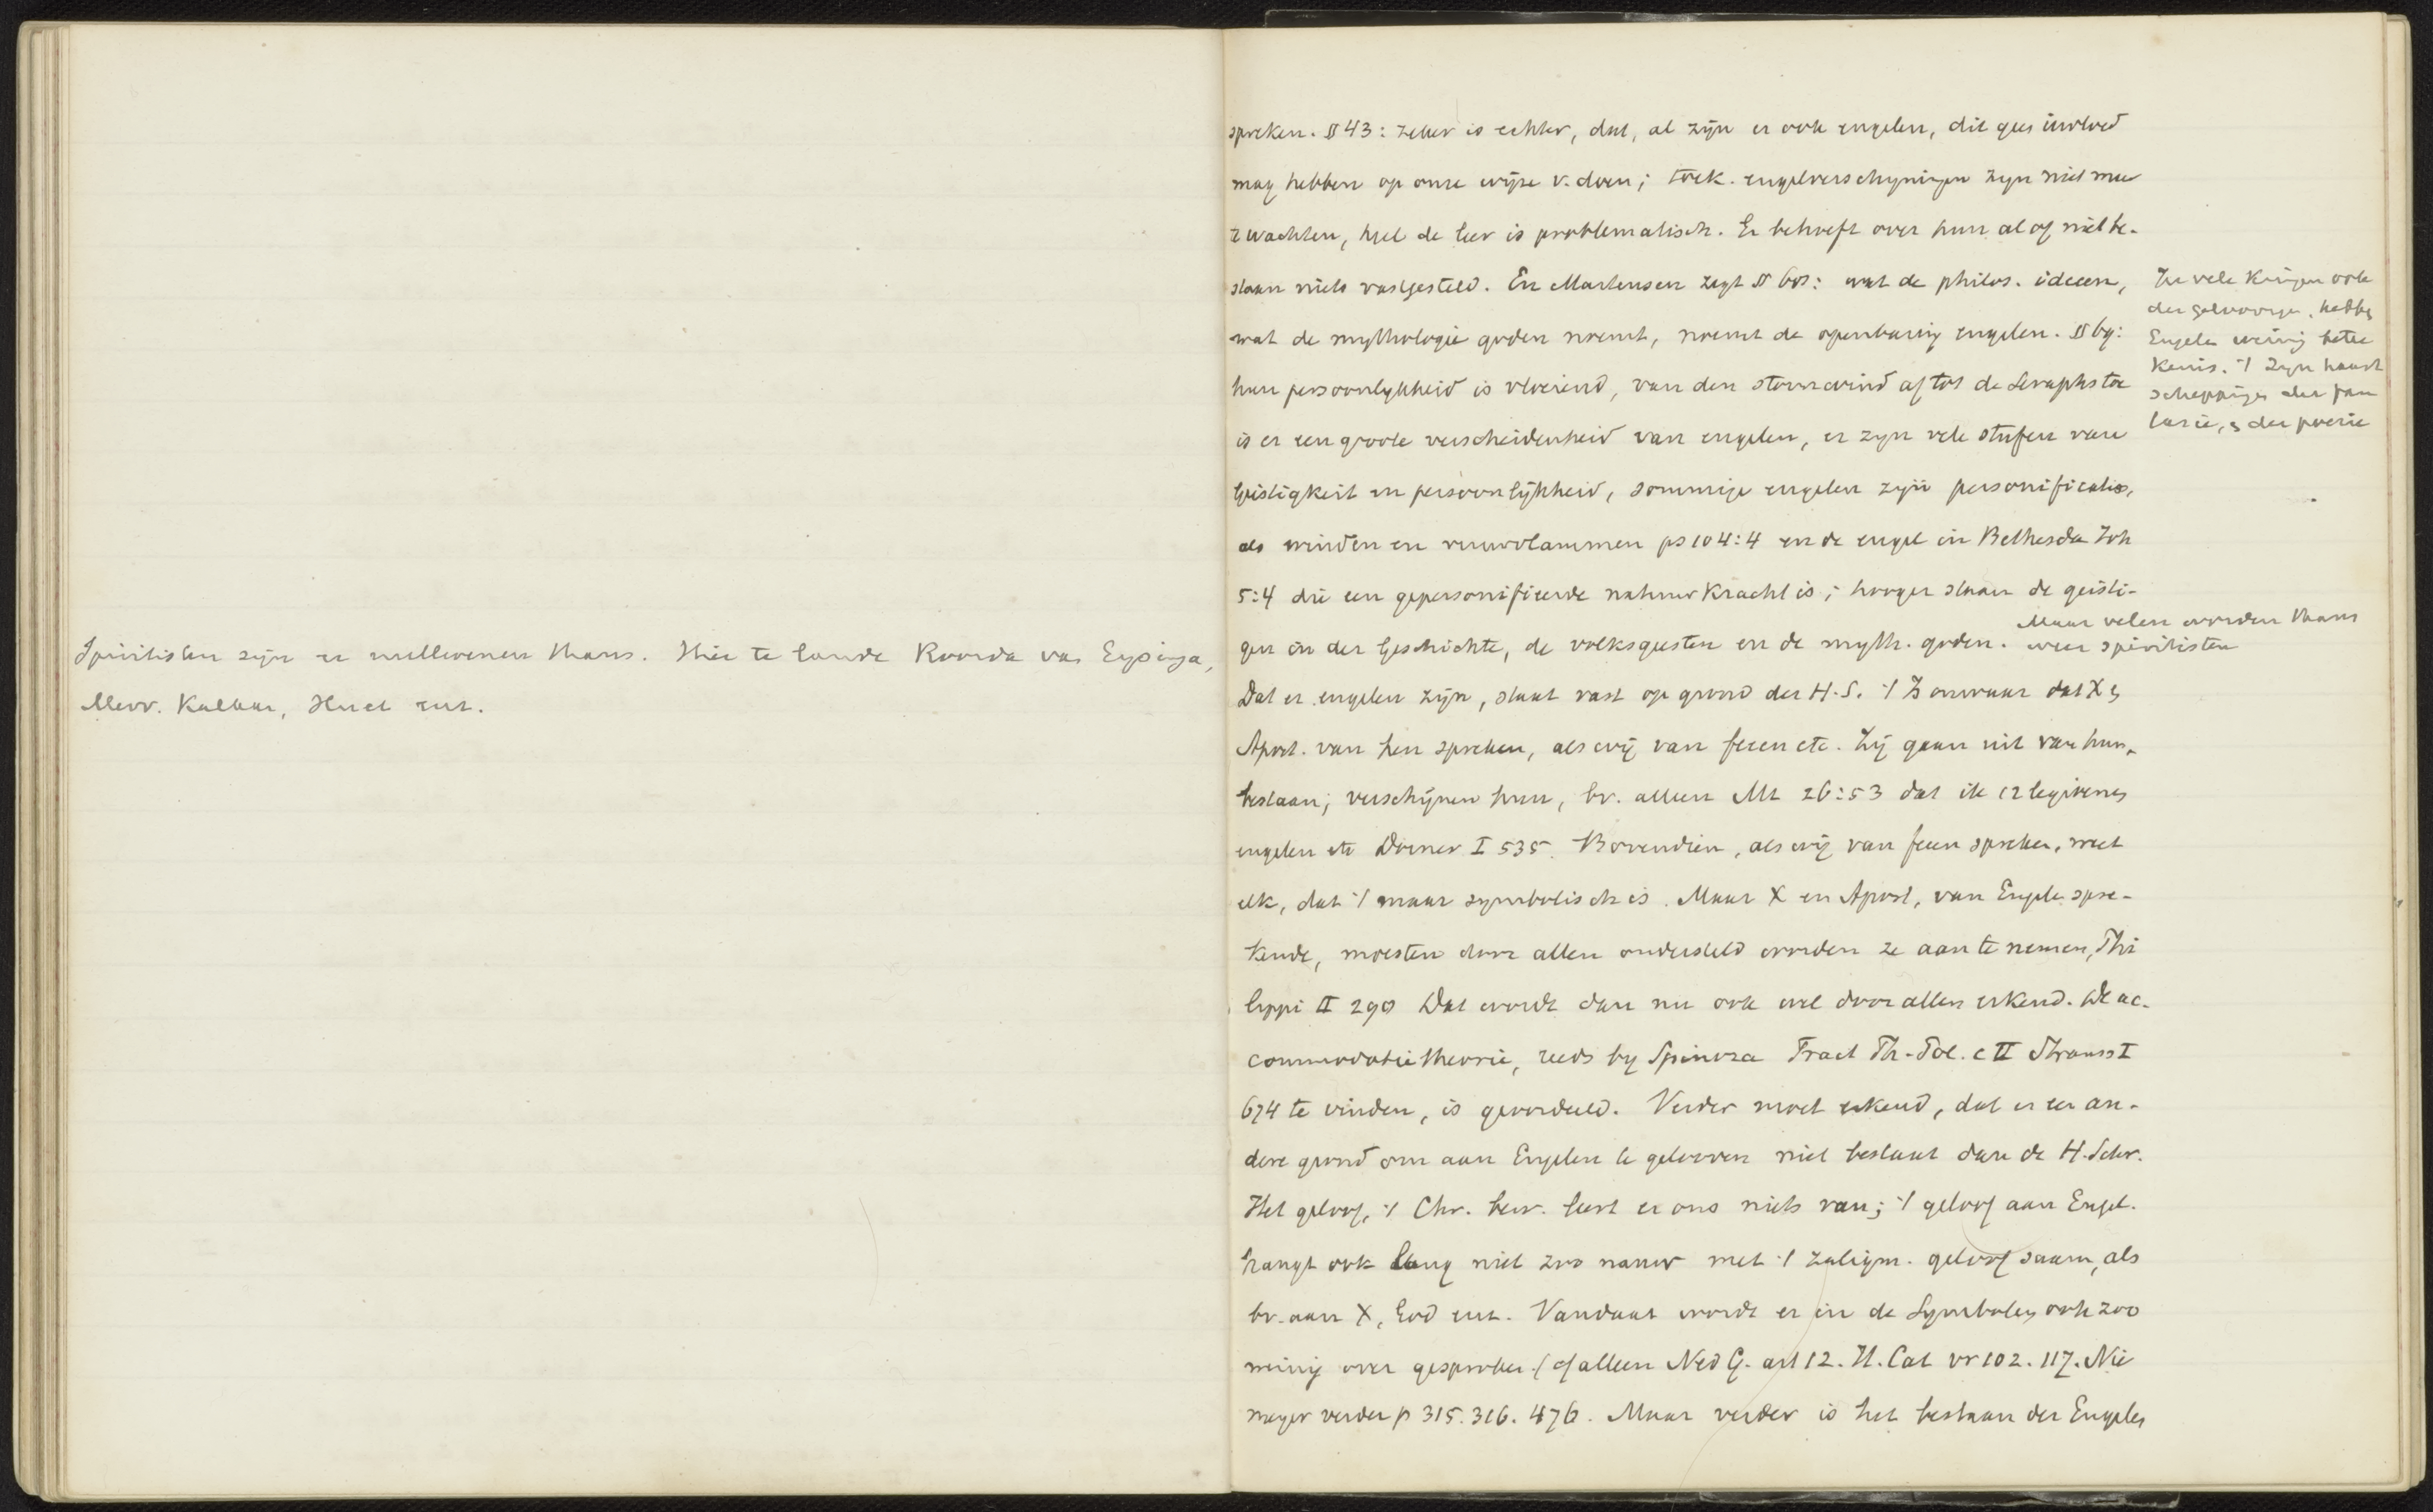 Spiritisten zijn er millioenen thans. Hier te lande Roorda van Eysinga,
Mevr. Kalkar, Huet enz.
spreken. § 43: zeker is echter, dat, al zijn er ook engelen, dit geen invloed
mag hebben op onze wijze v. doen; toek. engelverschijningen zijn niet meer
te wachten, heel de leer is problematisch. Er behoeft over hun al of niet be-
staan niets vastgesteld. En Martensen zegt § 68: wat de philos. ideeen,
wat de mythologie goden noemt, noemt de openbaring engelen. § 69:
hun persoonlykheid is vloeiend, van den stormwind af tot de Seraphs toe
is er een groote verscheidenheid van engelen, er zyn vele stufen van
Geistigkeit en persoonlijkheid, sommige engelen zijn personificatie,
als winden en vuurvlammen ps 104:4 en de engel in Bethesda Joh
5:4 die een gepersonifieerde natuurkracht is; hooger staan de geisti-
gen in der Geschichte, de volksgeesten en de myth. goden.
Maar velen worden thans
weer spiritisten
In vele kringen ook
der geloovigen, hebben
Engelen weinig betee
kenis. 't Zijn haast
scheppingen der fan
tasie, & der poezie
Dat er engelen zijn, staat vast op grond der H.S. 't Is onwaar dat X &
Apost. van hen spreken, als wij van feeen etc. Zij gaan uit van hun
bestaan; verschijnen hun, bv. alleen Mt 26:53 dat ik 12 legioenen
engelen etc Dorner I 535. Bovendien, als wij van feeen spreken, weet
elk, dat 't maar symbolisch is. Maar X en Apost, van Engelen spre-
kende, moesten door allen ondersteld worden ze aan te nemen, Phi
lippi II 290 Dat wordt dan nu ook wel door allen erkend. De ac-
commodatietheorie, reeds by Spinoza Tract Th-Pol. c II Strauss I
674 te vinden, is geoordeeld. Verder moet erkend, dat er een an-
dere grond om aan Engelen te gelooven niet bestaat dan de H. Schr.
Het geloof, 't Chr. bew. leert er ons niets van; 't geloof aan Engel.
hangt ook lang niet zoo nauw met 't zaligm. geloof saam, als
bv. aan X, God enz. Vandaar wordt er in de Symbolen ook zoo
weinig over gesproken. (cf alleen Ned G. art 12. H. Cat vr 102. 117. Nie
meyer verder p 315. 316. 476. Maar verder is het bestaan der Engelen